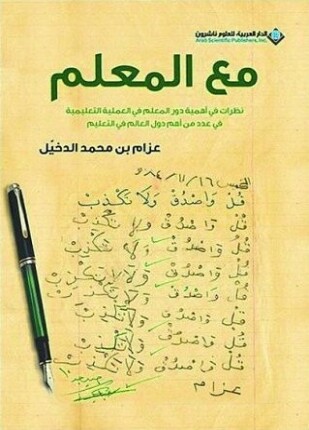 الدار العربية للعلوم ناشرون
Arab Scientific Publishers, Inc.
مع المعلم
نظرات في أهمية دور المعلم في العملية التعليمية
في عدد من أهم دول العالم في التعليم
عزام بن محمد الدخيّل
٨٤/١١/١٦
قُل وَاصْدُقْ وَلَا تَكْذِبْ
قل واصدق ولا تكذب
قل واصدق ولا تكذب
قل واصدق ولا تكذب
قل واصدق ولا تكذب
قل واصدق ولا تكذب
قل واصدق ولا تكذب
عزام